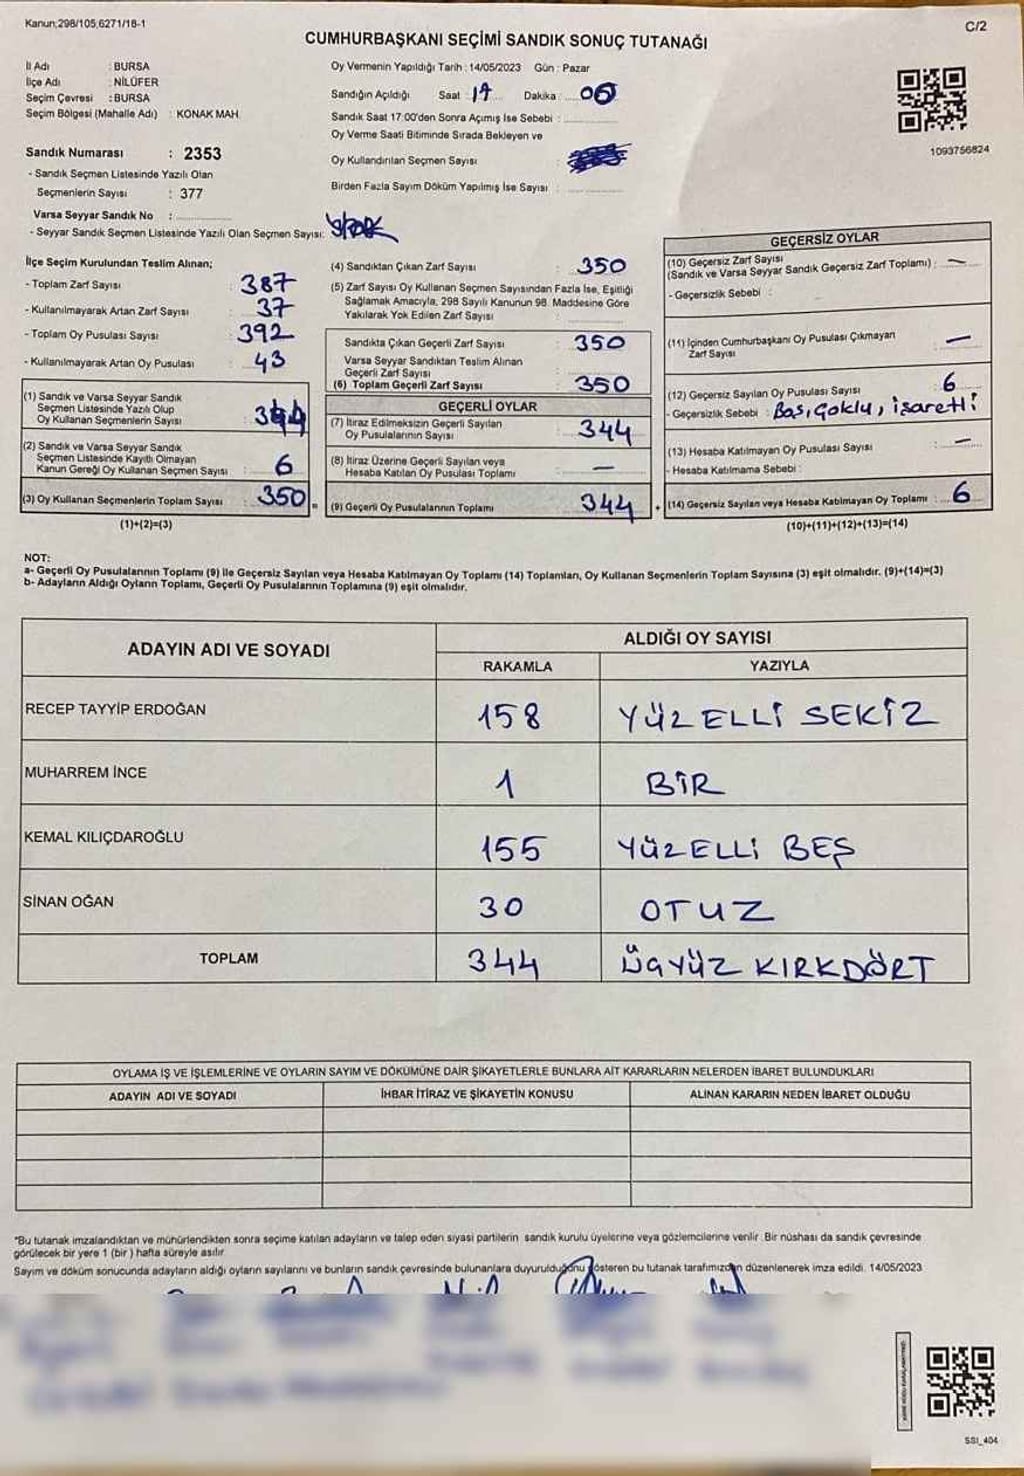 Kanun;298/105,6271/18-1
C/2
CUMHURBAŞKANI SEÇİMİ SANDIK SONUÇ TUTANAĞI
İl Adı : BURSA
İlçe Adı : NİLÜFER
Seçim Çevresi : BURSA
Seçim Bölgesi (Mahalle Adı) : KONAK MAH.
Sandık Numarası : 2353
- Sandık Seçmen Listesinde Yazılı Olan
Seçmenlerin Sayısı : 377
Varsa Seyyar Sandık No :
- Seyyar Sandık Seçmen Listesinde Yazılı Olan Seçmen Sayısı:
Oy Vermenin Yapıldığı Tarih : 14/05/2023 Gün : Pazar
Sandığın Açıldığı Saat : 17 Dakika : 05
Sandık Saat 17:00'den Sonra Açımış İse Sebebi :
Oy Verme Saati Bitiminde Sırada Bekleyen ve
Oy Kullandırılan Seçmen Sayısı :
Birden Fazla Sayım Döküm Yapılmış İse Sayısı :
1093756824
İlçe Seçim Kurulundan Teslim Alınan;
- Toplam Zarf Sayısı : 387
- Kullanılmayarak Artan Zarf Sayısı : 37
- Toplam Oy Pusulası Sayısı : 392
- Kullanılmayarak Artan Oy Pusulası : 43
(1) Sandık ve Varsa Seyyar Sandık
Seçmen Listesinde Yazılı Olup
Oy Kullanan Seçmenlerin Sayısı : 344
(2) Sandık ve Varsa Seyyar Sandık
Seçmen Listesinde Kayıtlı Olmayan
Kanun Gereği Oy Kullanan Seçmen Sayısı : 6
(3) Oy Kullanan Seçmenlerin Toplam Sayısı : 350
(1)+(2)=(3)
(4) Sandıktan Çıkan Zarf Sayısı : 350
(5) Zarf Sayısı Oy Kullanan Seçmen Sayısından Fazla İse, Eşitliği
Sağlamak Amacıyla, 298 Sayılı Kanunun 98. Maddesine Göre
Yakılarak Yok Edilen Zarf Sayısı :
Sandıkta Çıkan Geçerli Zarf Sayısı : 350
Varsa Seyyar Sandıktan Teslim Alınan
Geçerli Zarf Sayısı :
(6) Toplam Geçerli Zarf Sayısı : 350
GEÇERLİ OYLAR
(7) İtiraz Edilmeksizin Geçerli Sayılan
Oy Pusulalarının Sayısı : 344
(8) İtiraz Üzerine Geçerli Sayılan veya
Hesaba Katılan Oy Pusulası Toplamı : —
= (9) Geçerli Oy Pusulalarının Toplamı : 344
GEÇERSİZ OYLAR
(10) Geçersiz Zarf Sayısı
(Sandık ve Varsa Seyyar Sandık Geçersiz Zarf Toplamı) : —
- Geçersizlik Sebebi :
(11) İçinden Cumhurbaşkanı Oy Pusulası Çıkmayan
Zarf Sayısı : —
(12) Geçersiz Sayılan Oy Pusulası Sayısı : 6
- Geçersizlik Sebebi : Boş, Çoklu, işaretli
(13) Hesaba Katılmayan Oy Pusulası Sayısı : —
- Hesaba Katılmama Sebebi :
+ (14) Geçersiz Sayılan veya Hesaba Katılmayan Oy Toplamı : 6
(10)+(11)+(12)+(13)=(14)
NOT:
a- Geçerli Oy Pusulalarının Toplamı (9) İle Geçersiz Sayılan veya Hesaba Katılmayan Oy Toplamı (14) Toplamları, Oy Kullanan Seçmenlerin Toplam Sayısına (3) eşit olmalıdır. (9)+(14)=(3)
b- Adayların Aldığı Oyların Toplamı, Geçerli Oy Pusulalarının Toplamına (9) eşit olmalıdır.
ADAYIN ADI VE SOYADI ALDIĞI OY SAYISI
RAKAMLA YAZIYLA
RECEP TAYYİP ERDOĞAN 158 YÜZELLİ SEKİZ
MUHARREM İNCE 1 BİR
KEMAL KILIÇDAROĞLU 155 YÜZELLİ BEŞ
SİNAN OĞAN 30 OTUZ
TOPLAM 344 ÜÇYÜZ KIRKDÖRT
OYLAMA İŞ VE İŞLEMLERİNE VE OYLARIN SAYIM VE DÖKÜMÜNE DAİR ŞİKAYETLERLE BUNLARA AİT KARARLARIN NELERDEN İBARET BULUNDUKLARI
ADAYIN ADI VE SOYADI İHBAR İTİRAZ VE ŞİKAYETİN KONUSU ALINAN KARARIN NEDEN İBARET OLDUĞU
*Bu tutanak imzalandıktan ve mühürlendikten sonra seçime katılan adayların ve talep eden siyasi partilerin sandık kurulu üyelerine veya gözlemcilerine verilir. Bir nüshası da sandık çevresinde
görülecek bir yere 1 (bir ) hafta süreyle asılır.
Sayım ve döküm sonucunda adayların aldığı oyların sayılarını ve bunların sandık çevresinde bulunanlara duyurulduğunu gösteren bu tutanak tarafımızdan düzenlenerek imza edildi. 14/05/2023
SSI_404